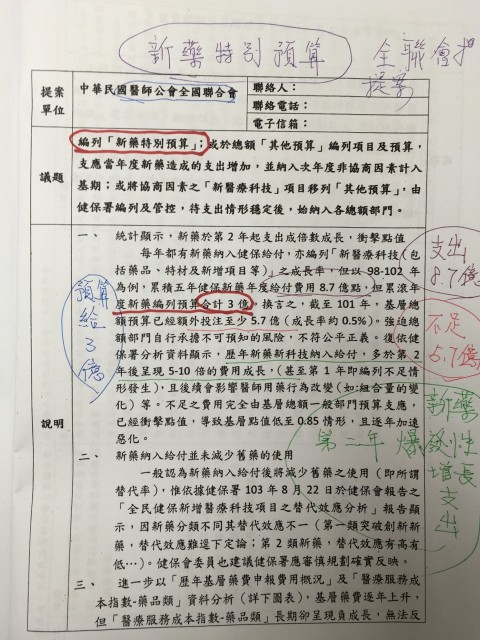 新藥特別預算
全聯會
提案
提案單位
中華民國醫師公會全國聯合會
聯絡人：
聯絡電話：
電子信箱：
議題
編列「新藥特別預算」；或於總額「其他預算」編列項目及預算，
支應當年度新藥造成的支出增加，並納入次年度非協商因素計入
基期；或將協商因素之「新醫療科技」項目移列「其他預算」，由
健保署編列及管控，待支出情形穩定後，始納入各總額部門。
說明
一、 統計顯示，新藥於第2年起支出成倍數成長，衝擊點值
每年都有新藥納入健保給付，亦編列「新醫療科技(包
括藥品、特材及新增項目等)」之成長率，但以98-102年
為例，累積五年健保新藥年度給付費用8.7億，但累滾年
度新藥編列預算合計3億，換言之，截至101年，基層總
額預算已經額外投注至少5.7億(成長率約0.5%)。強迫總
額部門自行承擔不可預知的風險，不符公平正義。復依健
保署分析資料顯示，歷年新藥新科技納入給付，多於第2
年後呈現5-10倍的費用成長，(甚至第1年即編列不足情
形發生)，且後續會影響醫師用藥行為改變(如:組合量的變
化)等。不足之費用完全由基層總額一般部門預算支應，
已經衝擊點值，導致基層點值低至0.85情形，且逐年加速
惡化。
二、 新藥納入給付並未減少舊藥的使用
一般認為新藥納入給付後將減少舊藥之使用(即所謂
替代率)，惟依據健保署103年8月22日於健保會報告之
「全民健保新增醫療科技項目之替代效應分析」報告顯
示，因新藥分類不同其替代效應不一(第一類突破創新新
藥，替代效應難逕下定論；第2類新藥，替代效應有高有
低…)。健保會委員也建議健保署應審慎規劃確實反映。
三、 進一步以「歷年基層藥費申報費用概況」及「醫療服務成
本指數-藥品類」資料分析(詳下圖表)，基層藥費逐年上升，
但「醫療服務成本指數-藥品類」長期卻呈現負成長，無法反
預算
給
3
億
支出
8.7億
不足
5.7億
新藥
第二年 爆發性
增長
支出